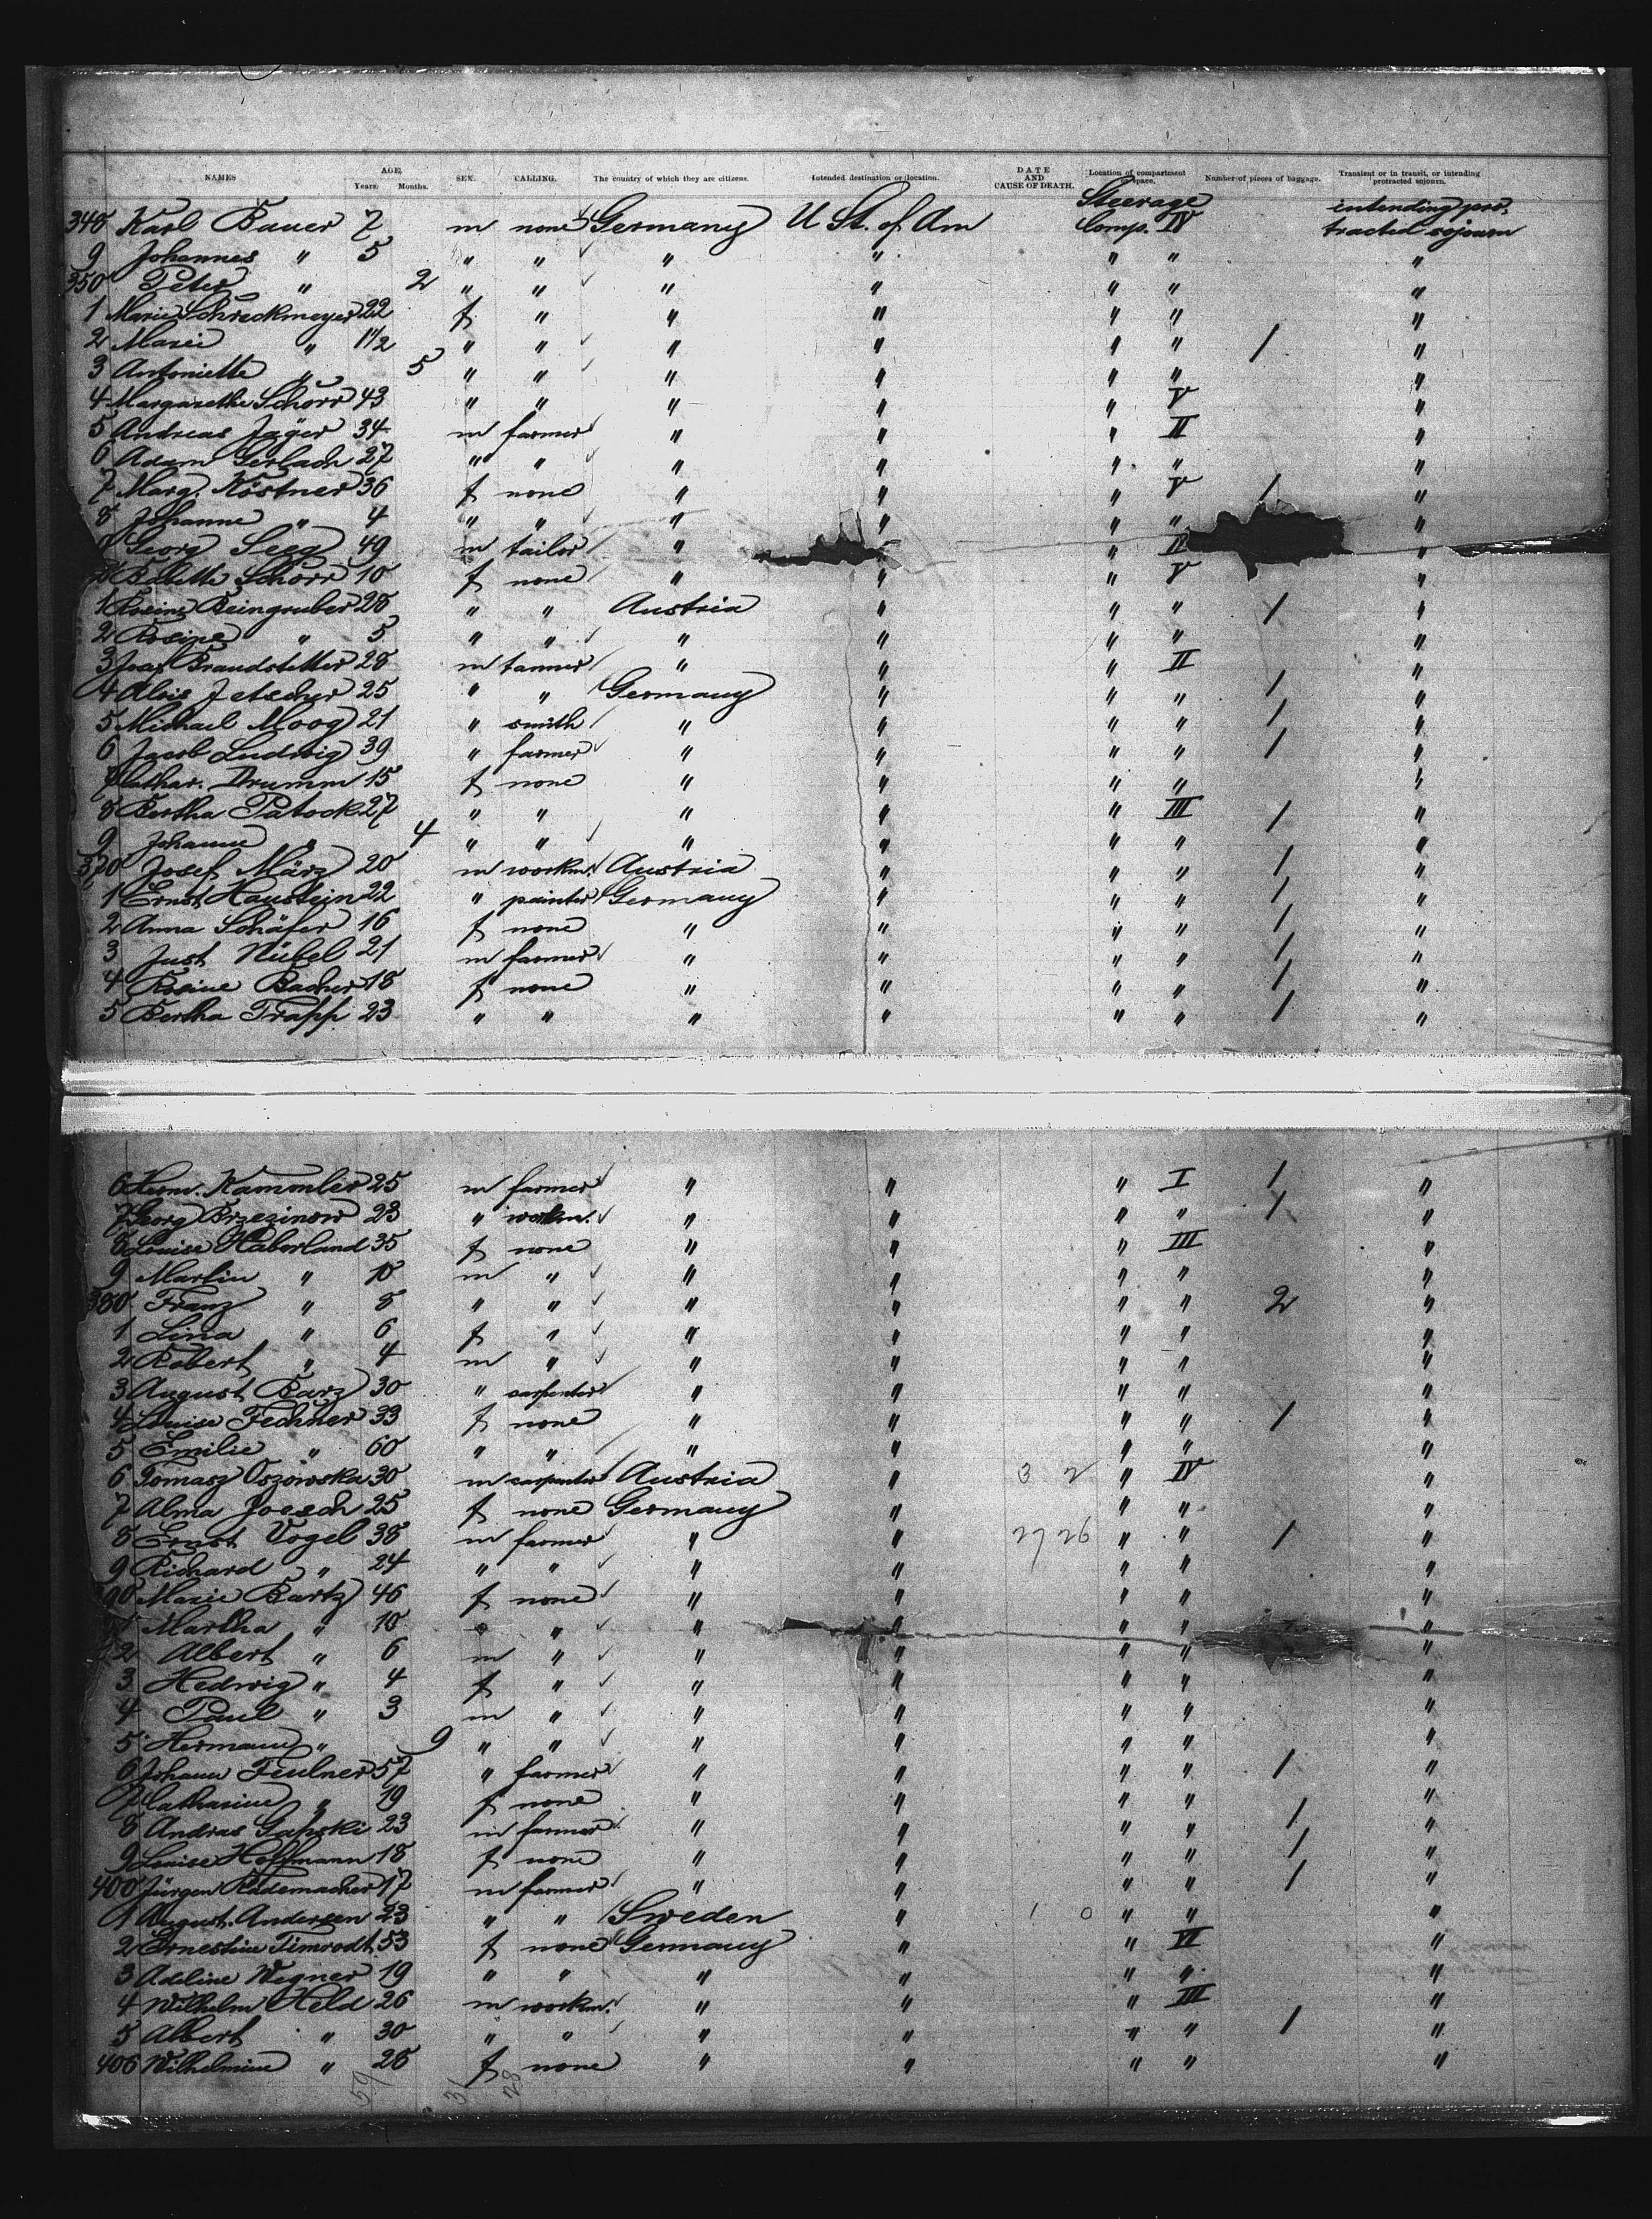 NAMES AGE, Years. Months. SEX. CALLING. The country of which they are citizens. Intended destination or location. DATE AND CAUSE OF DEATH. Location of compartment or space. Number of pieces of baggage. Transient or in transit, or intending protracted sojourn.
348 Karl Bauer 7 m none Germany U St. of Am Steerage Comp. IV intending protracted sojourn
9 Johannes " 5 " " " " " " "
350 Peter " 2 " " " " " " "
1 Marie Schreckmeyer 22 f " " " " " "
2 Marie " 1 1/2 " " " " " " / "
3 Antoniette " 5 " " " " " " "
4 Margarethe Schorr 43 " " " " " V "
5 Andreas Jäger 34 m farmer " " " II "
6 Adam Gerlach 27 " " " " " " "
7 Marg. Köstner 36 f none " " " V / "
8 Johanne " 4 " " " " " " "
Georg Seeg 49 m tailor " " " "
Babette Schorr 10 f none " " " V "
1 Rosine Beingruber 28 " " Austria " " " / "
2 Rosine " 5 " " " " " " "
3 Josef Brandstetter 28 m tanner " " " II "
4 Alois Jetscher 25 " " Germany " " " / "
5 Michael Moog 21 " smith " " " " / "
6 Jacob Ludwig 39 " farmer " " " " / "
7 Cathar. Drumm 15 f none " " " " "
8 Bertha Patock 27 " " " " " III / "
9 Johanne " 4 " " " " " " "
370 Josef März 20 m workm. Austria " " " / "
1 Ernst Haustein 22 " painter Germany " " " / "
2 Anna Schäfer 16 f none " " " " / "
3 Just Nübel 21 m farmer " " " " / "
4 Rosine Bacher 18 f none " " " " / "
5 Bertha Trapp 23 " " " " " " / "
6 Herm. Kammler 25 m farmer " " " I / "
7 Georg Brzezinow 23 " workm. " " " " / "
8 Louise Haberland 35 f none " " " III "
9 Martin " 10 m " " " " " "
380 Franz " 8 " " " " " " 2 "
1 Lina " 6 f " " " " " "
2 Robert " 4 m " " " " " "
3 August Barz 30 " carpenter " " " " "
4 Louise Fechner 33 f none " " " " / "
5 Emilie " 60 " " " " " " "
6 Tomasz Oszowska 30 m carpenter Austria " 3 2 " IV "
7 Alma Joesch 25 f none Germany " " " "
8 Ernst Vogel 38 m farmer " " 27 26 " " / "
9 Richard " 24 " " " " " " "
90 Marie Bartz 46 f none " " " " "
1 Martha " 10 " " " " " " "
2 Albert " 6 m " " " " " "
3 Hedwig " 4 f " " " " " "
4 Paul " 3 m " " " " " "
5 Hermann " 9 " " " " " " "
6 Johann Feulner 57 " farmer " " " " / "
7 Catharine " 19 f none " " " " "
8 Andras Gapski 23 m farmer " " " " / "
9 Louise Hoffmann 18 f none " " " " / "
400 Jürgen Rademacher 17 m farmer " " " " / "
1 August. Andersen 23 " " Sweden " 1 0 " " "
2 Ernestine Timrodt 53 f none Germany " " VI "
3 Adeline Wegner 19 " " " " " " "
4 Wilhelm Held 26 m workm. " " " III "
5 Albert " 30 " " " " " " / "
406 Wilhelmine " 28 f none " " " " "
59 31 28